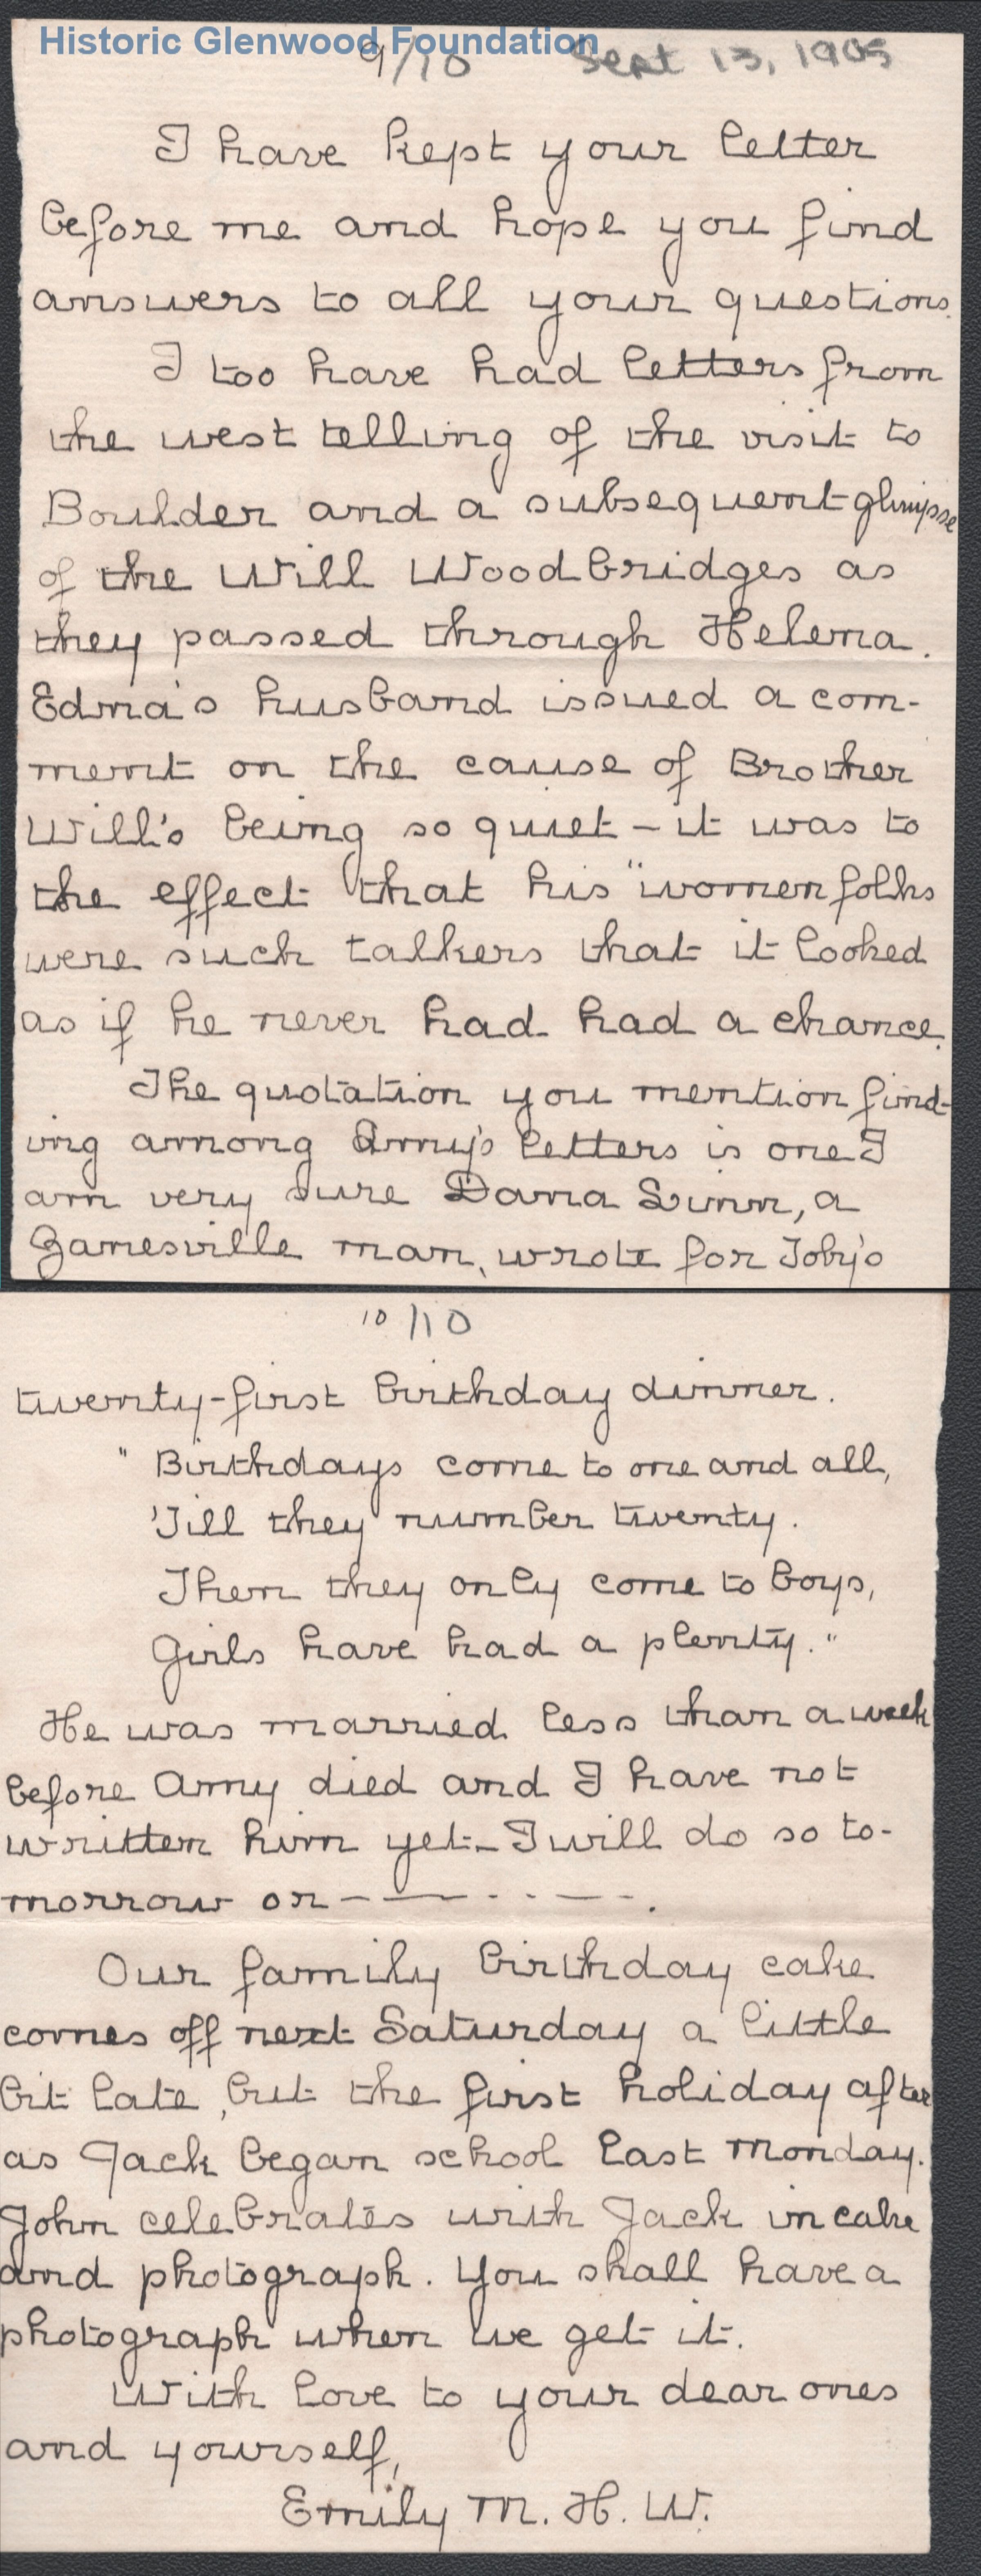 Historic Glenwood Foundation
9/10 Sept 13, 1905
I have kept your letter
before me and hope you find
answers to all your questions.
I too have had letters from
the west telling of the visit to
Boulder and a subsequent glimpse
of the Will Woodbridges as
they passed through Helena.
Edna's husband issued a com-
ment on the cause of Brother
Will's being so quiet - it was to
the effect that his "women folks
were such talkers that it looked
as if he never had had a chance.
The quotation you mention find-
ing among Amy's letters is one I
am very sure Dana Linn, a
Zanesville man, wrote for Toby's
10/10
twenty-first birthday dinner.
"Birthdays come to one and all,
'Till they number twenty.
Then they only come to boys,
Girls have had a plenty."
He was married less than a week
before Amy died and I have not
written him yet - I will do so to-
morrow or - — - - - — - .
Our family birthday cake
comes off next Saturday a little
bit late, but the first holiday after
as Jack began school last Monday.
John celebrates with Jack in cake
and photograph. You shall have a
photograph when we get it.
With love to your dear ones
and yourself,
Emily M. H. W.